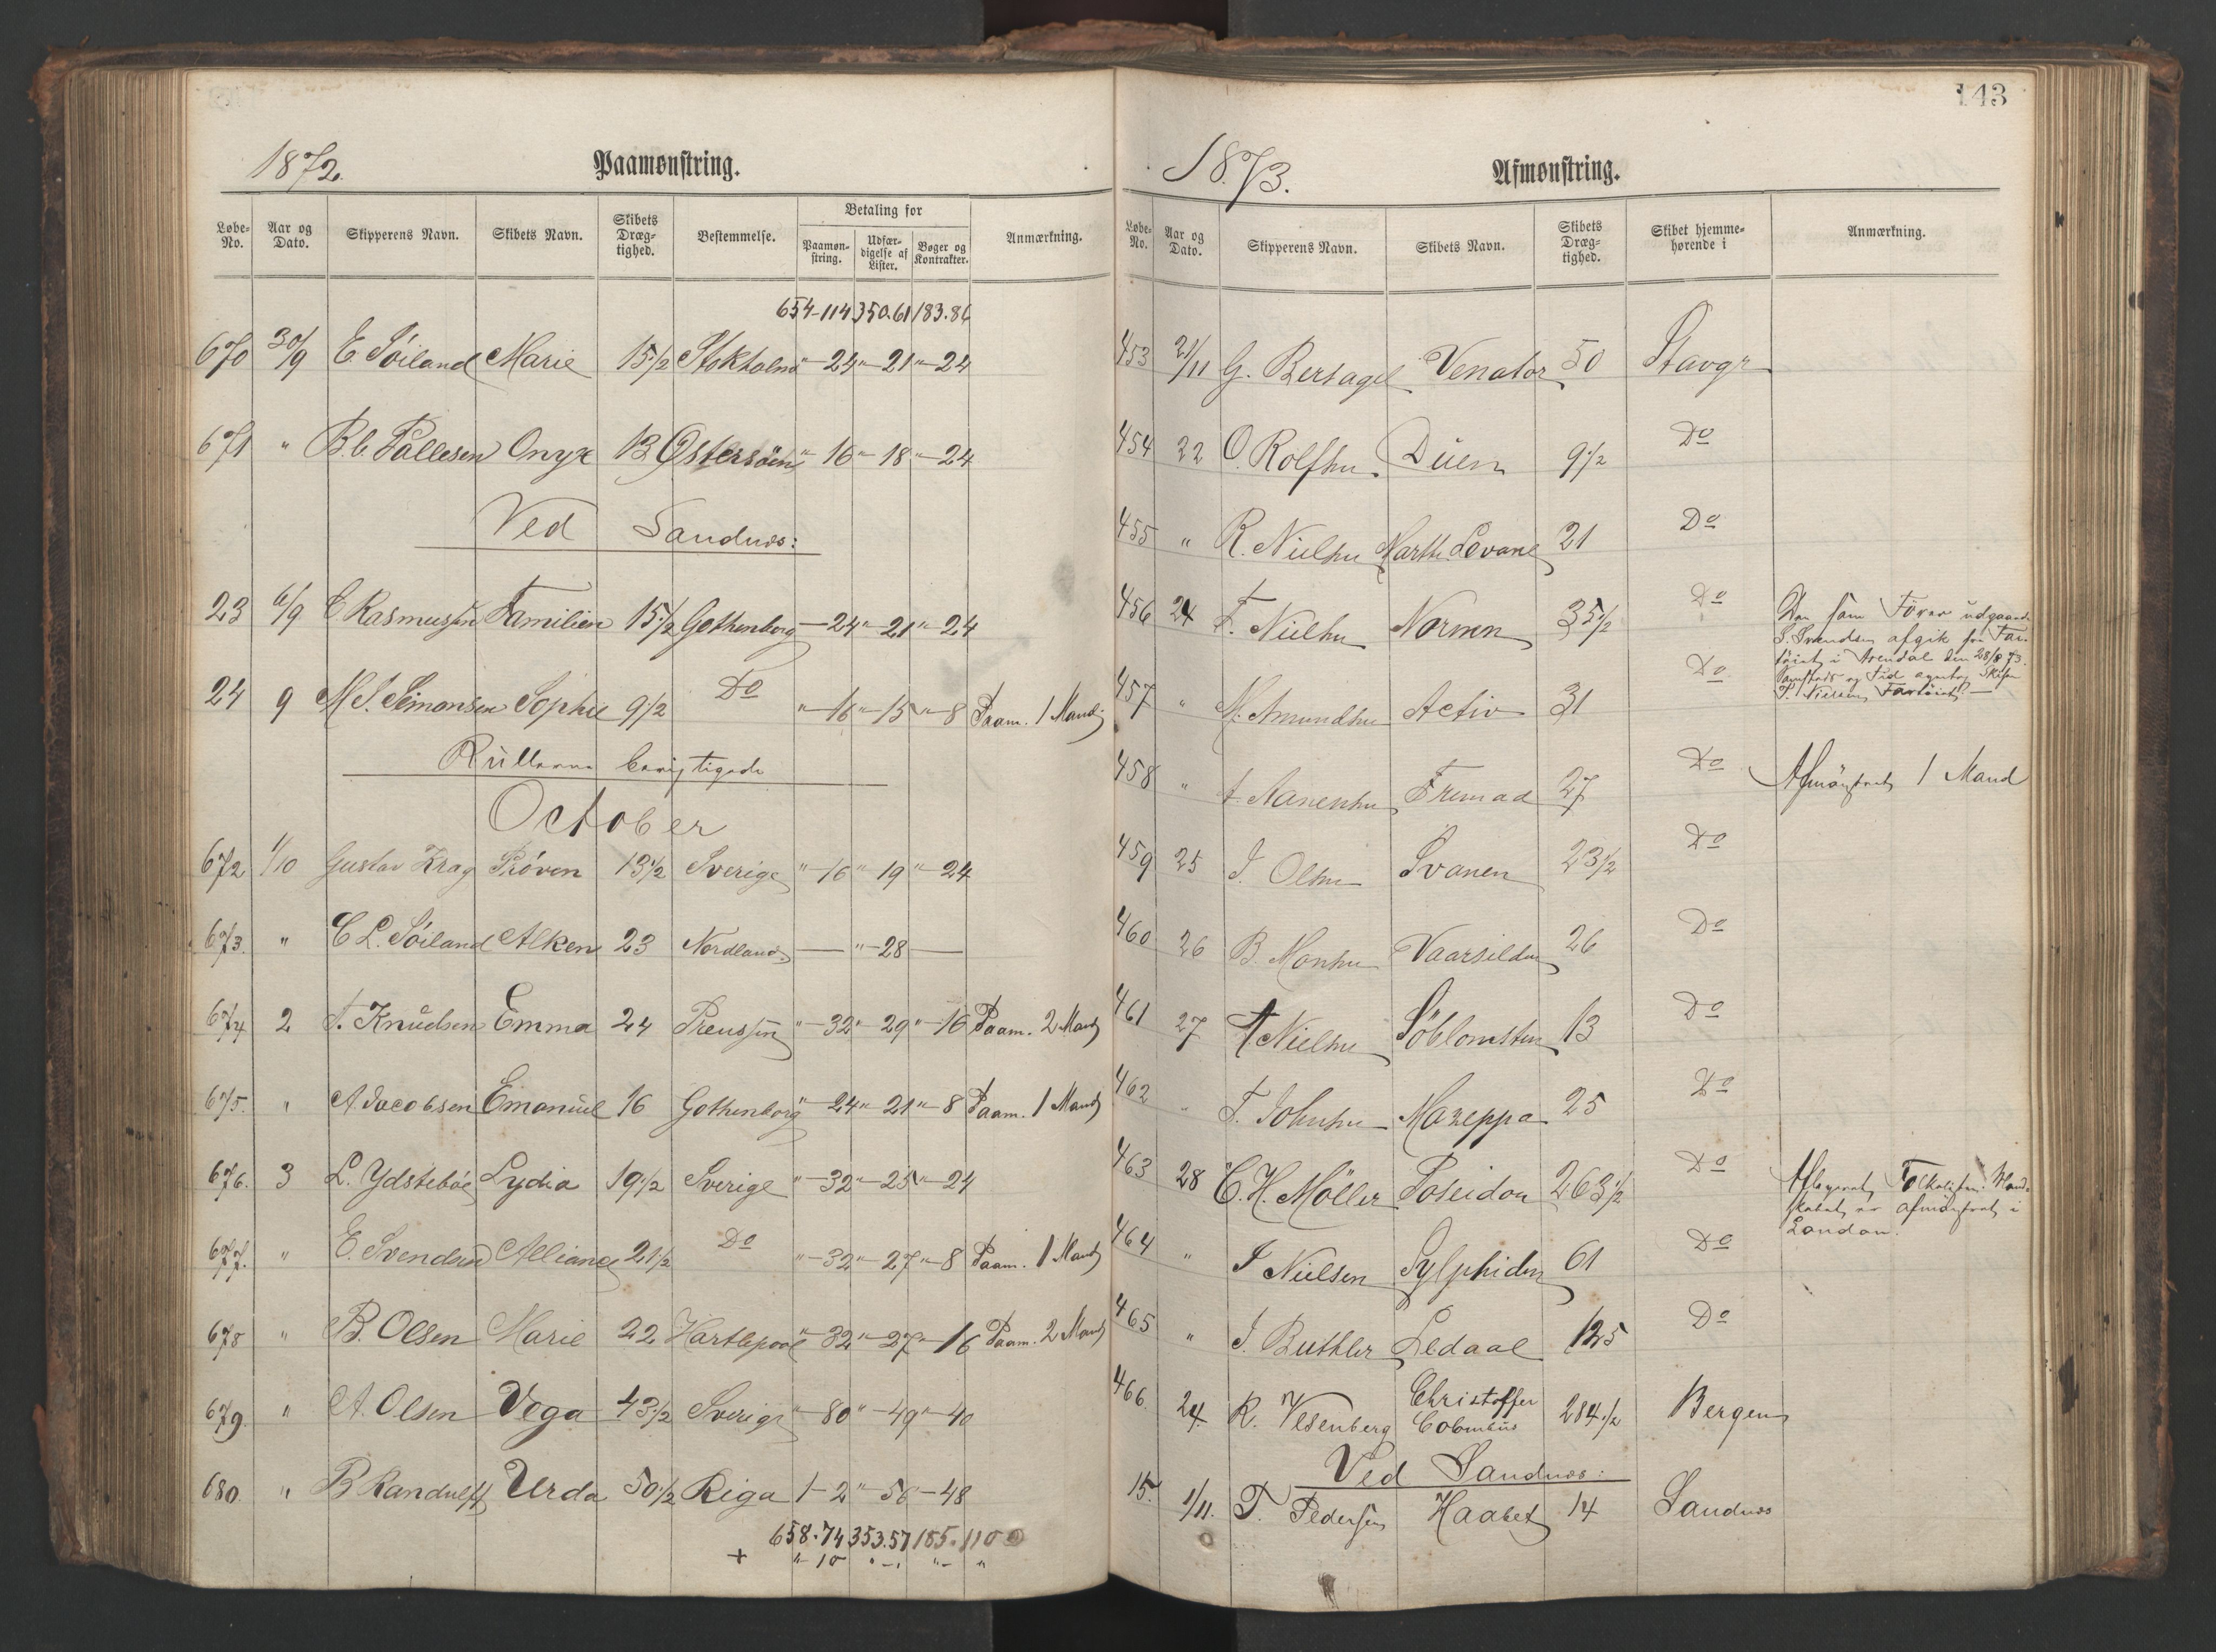 1872.
Paamønstring.
Løbe-No. Aar og Dato. Skipperens Navn. Skibets Navn. Skibets Dræg-tighed. Bestemmelse. Betaling for Paamøn-string. Udfær-digelse af Lister. Bøger og Kontrakter. Anmærkning.
654-114 350.61 183.86
670 30/9 E. Söiland Marie 15 1/2 Stokholm "-24 "-21 "-24
671 " B. C. Pallesen Onyx 13 Østersöen "-16 "-18 "-24
Ved Sandnæs:
23 6/9 E Rasmussen Familien 15 1/2 Gothenborg -24 "-21 "-24
24 9 M S. Simonsen Sophie 9 1/2 Do "-16 "-15 "-8 Paam. 1 Mand
Rullerne berigtigede
October
672 1/10 Gustav Krag Pröven 13 1/2 Sverige "-16 "-19 "-24
673. " C L. Söiland Alken 23 Nordland — "-28 —
674 2 T. Knudsen Emma 24 Preussen "-32 "-29 "-16 Paam. 2 Mand
675. " A Jacobsen Emanuel 16 Gothenborg "-24 "-21 "-8 Paam. 1 Mand
676. 3 L. Ydsteböe Lydia 19 1/2 Sverige "-32 "-25 "-24
677. " E. Svendsen Alliance 21 1/2 Do "-32 "-27 "-8 Paam. 1 Mand
678 " B. Olsen Marie 22 Hartlepool "-32 "-27 "-16 Paam. 2 Mand
679. " A. Olsen Vega 43 1/2 Sverige "-80 "-49 "-40
680. " B Randulff Urda 50 1/2 Riga 1-2 "-56 -48
658.74 353.57 185.110
+ "-10 "-" "-"
143
1873.
Afmønstring.
Løbe-No. Aar og Dato. Skipperens Navn. Skibets Navn. Skibets Dræg-tighed. Skibet hjemme-hørende i Anmærkning.
453 21/11 G. Bersagel Venator 50 Stavgr
454 22 O. Rolfsen Duen 9 1/2 Do
455 " R. Nielsen Marthe Lovane 21 Do
456 24 T. Nielsen Normen 35 1/2 Do Den som Förer udgaaende
S. Svendsen afgik fra Far-
töiet i Arendal den 28/8 73.
Samsteds og Tid overtog Skipr
T. Nielsen Fartöiet.
457 " M. Amundsen Activ 31 Do
458 " Nanensen Fremad 27 Do Afmönstret 1 Mand
459 25 J. Olsen Svanen 23 1/2 Do
460 26 B. Monsen Vaarsilden 26 Do
461 27 T Nielsen Söblomsten 13 Do
462 " T. Johnsen Mazeppa 25 Do
463 28 C. H. Möller Poseidon 263 1/2 Do Afleveret Folkelisten. Mand-
skabet er afmönstret i
London.
464 " J Nielsen Sylphiden 61 Do
465 " J. Buthler Ledaal 125 Do
466 24 R. Vesenberg Christoffer Colombus 284 1/2 Bergen
Ved Sandnæs:
15. 1/11. T. Pedersen Haabet 14 Sandnæs